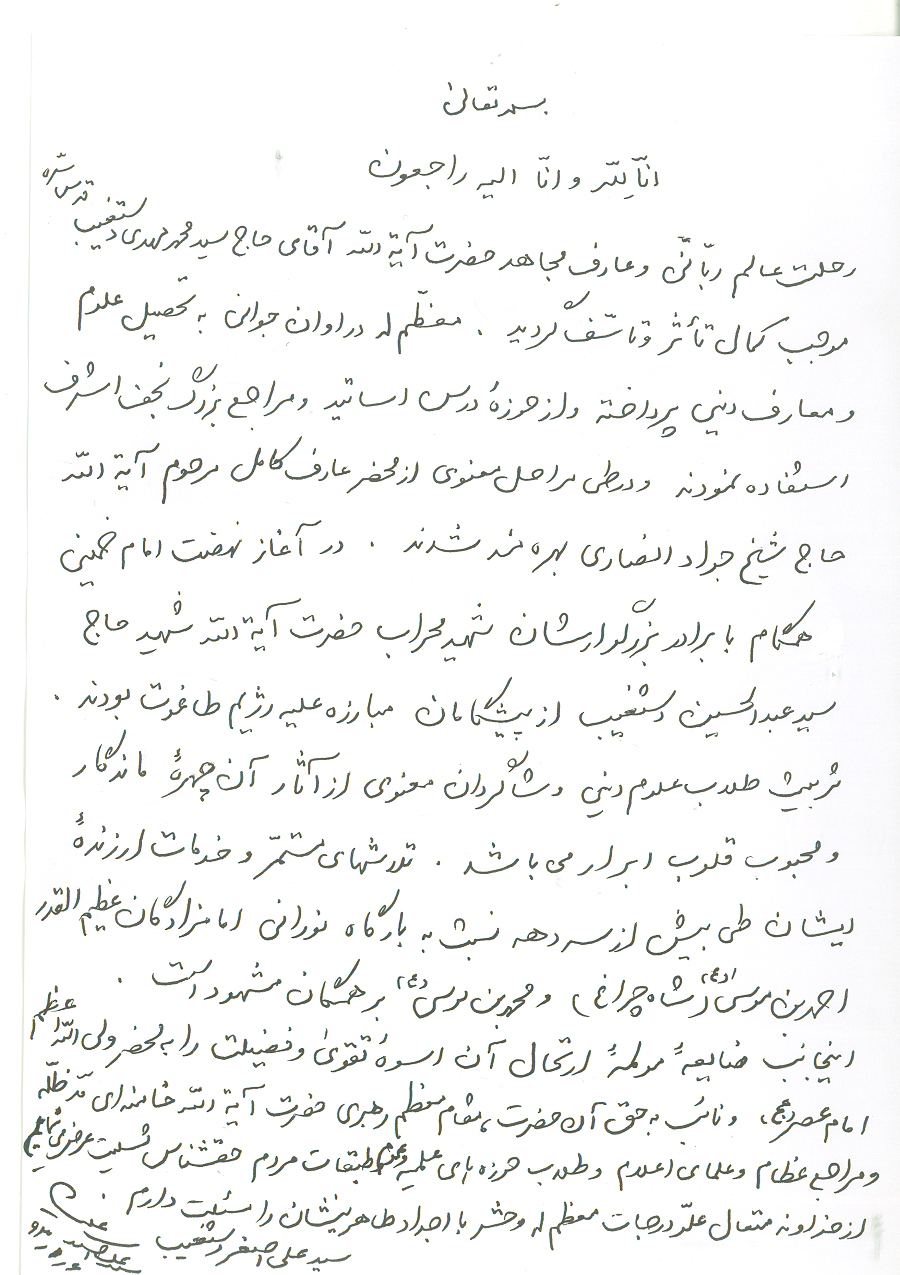 بسمه تعالی
انّا لِلّه و انّا الیه راجعون
رحلت عالم ربّانی و عارف مجاهد حضرت آیة الله آقای حاج سید محمد مهدی دستغیب قدس سرّه
موجب کمال تأثر و تاسّف گردید . معظّم له در اوان جوانی به تحصیل علوم
و معارف دینی پرداخته و از حوزهٔ درس اساتید و مراجع بزرگ نجف اشرف
استفاده نمودند و در طی مراحل معنوی از محضر عارف کامل مرحوم آیة الله
حاج شیخ جواد انصاری بهره مند شدند . در آغاز نهضت امام خمینی
همگام با برادر بزرگوارشان شهید محراب حضرت آیة الله شهید حاج
سید عبدالحسین دستغیب از پیشگامان مبارزه علیه رژیم طاغوت بودند .
تربیت طلاب علوم دینی و شاگردان معنوی از آثار آن چهرهٔ ماندگار
و محبوب قلوب ابرار می باشد . تلاشهای مستمّر و خدمات ارزندهٔ
ایشان طی بیش از سه دهه نسبت به بارگاه نورانی امامزادگان عظیم القدر
احمد بن موسی (ع) (شاه چراغ) و محمد بن موسی (ع) بر همگان مشهود است .
اینجانب ضایعهٔ مولمهٔ ارتحال آن اسوهٔ تقوی و فضیلت را به محضر ولی الله اعظم
امام عصر (عج) و نائب به حق آن حضرت، مقام معظم رهبری حضرت آیة الله خامنه ای مدّ ظلّه
و مراجع عظام و علمای اعلام و طلاب حوزه های علمیه و عموم طبقات مردم حقشناس تسلیت عرض می نمایم
از خداوند متعال علّو درجات معظم له و حشر با اجداد طاهرینشان را مسئلت دارم .
سید علی اصغر دستغیب